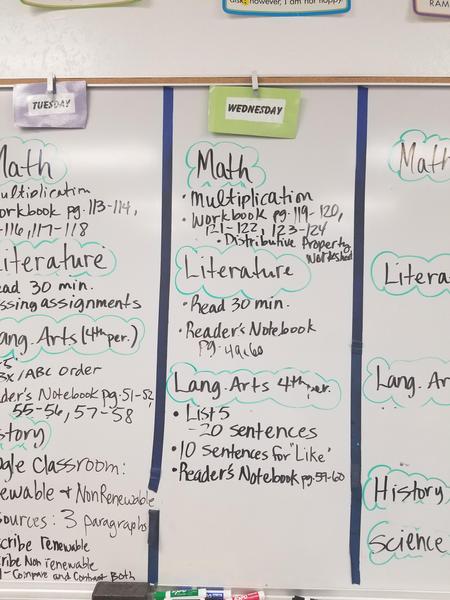 disk; however, I am not happy
RAM
TUESDAY
Math
Multiplication
workbook pg. 113-114,
-116, 117-118
Literature
Read 30 min.
missing assignments
Lang. Arts (4th per.)
3x/ABC Order
Reader's Notebook pg. 51-52,
55-56, 57-58
History
Google Classroom:
Renewable + NonRenewable
Sources: 3 paragraphs
scribe renewable
cribe Non renewable
1-Compare and Contrast Both
WEDNESDAY
Math
• Multiplication
• Workbook pg. 119-120,
121-122, 123-124
• Distributive Property
Worksheet
Literature
• Read 30 min.
• Reader's Notebook
pg. 49, 60
Lang. Arts 4th per.
• List 5
-20 sentences
• 10 sentences for "Like"
• Reader's Notebook pg. 59-60
Math
Litera
Lang. Ar
History
Science